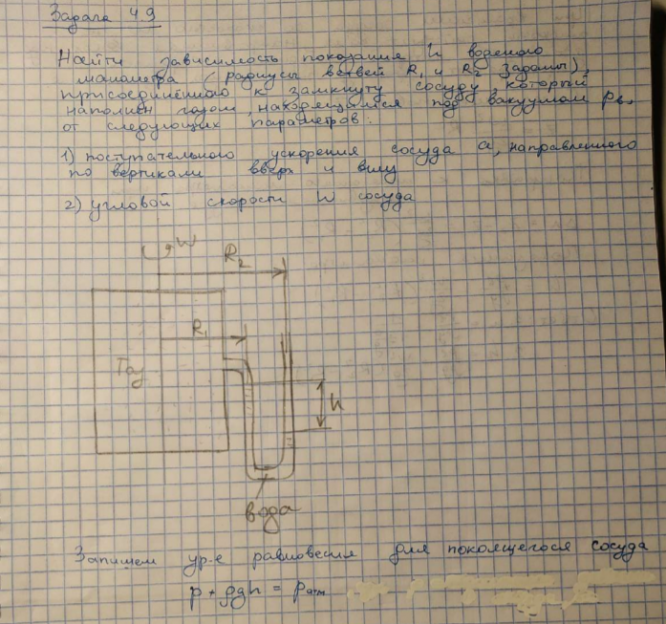 Задача 4.9
Найти зависимость показания h водяного
манометра (радиусы ветвей R₁ и R₂ заданы),
присоединённого к замкнуту сосуду, который
наполнен газом, находящимся под вакуумом pв.
от следующих параметров:
1) поступательного ускорения сосуда a, направленного
по вертикали вверх и вниз
2) угловой скорости W сосуда
W
R₂
R₁
Газ
h
вода
Запишем ур-е равновесия для покоящегося сосуда
p + ρgh = pатм